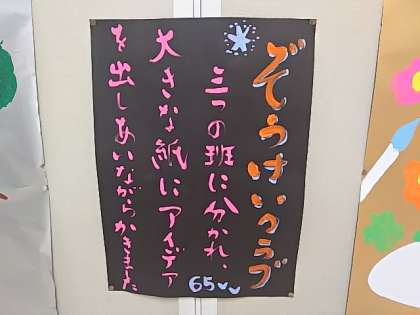 ぞうけいクラブ
三つの班に分かれ、
大きな紙にアイデア
を出しあいながらかきました